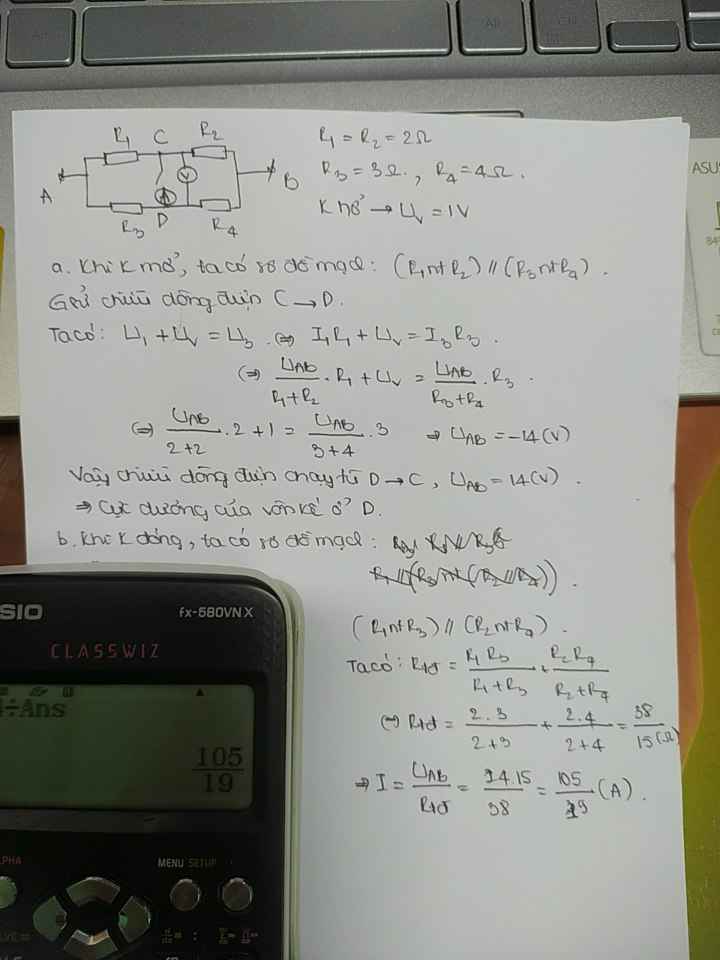 Alt
ASUS
R₁ C R₂
A V B
A
R₃ D R₄
R₁ = R₂ = 2Ω
R₃ = 3Ω, R₄ = 4Ω.
K mở → Uᵥ = 1V
a. Khi K mở, ta có sơ đồ mạch: (R₁ nt R₂) // (R₃ nt R₄).
Gsử chiều dòng điện C → D.
Ta có: U₁ + Uᵥ = U₃. ⇔ I₁R₁ + Uᵥ = I₃R₃.
⇔ U_AB/(R₁+R₂) . R₁ + Uᵥ = U_AB/(R₃+R₄) . R₃.
⇔ U_AB/(2+2) . 2 + 1 = U_AB/(3+4) . 3 ⇒ U_AB = -14 (V)
Vậy chiều dòng điện chạy từ D → C, U_AB = 14 (V).
⇒ Cực dương của vôn kế ở D.
b. Khi K đóng, ta có sơ đồ mạch:
R₁ // (R₃ nt (R₂ // R₄)).
(R₁ nt R₃) // (R₂ nt R₄).
Ta có: Rtđ = R₁R₃/(R₁+R₃) + R₂R₄/(R₂+R₄)
⇔ Rtđ = 2.3/(2+3) + 2.4/(2+4) = 38/15 (Ω)
⇒ I = U_AB/Rtđ = 14.15/38 = 105/19 (A).
SIO
fx-580VN X
CLASSWIZ
÷Ans
105/19
PHA
MENU SETUP
LVE =